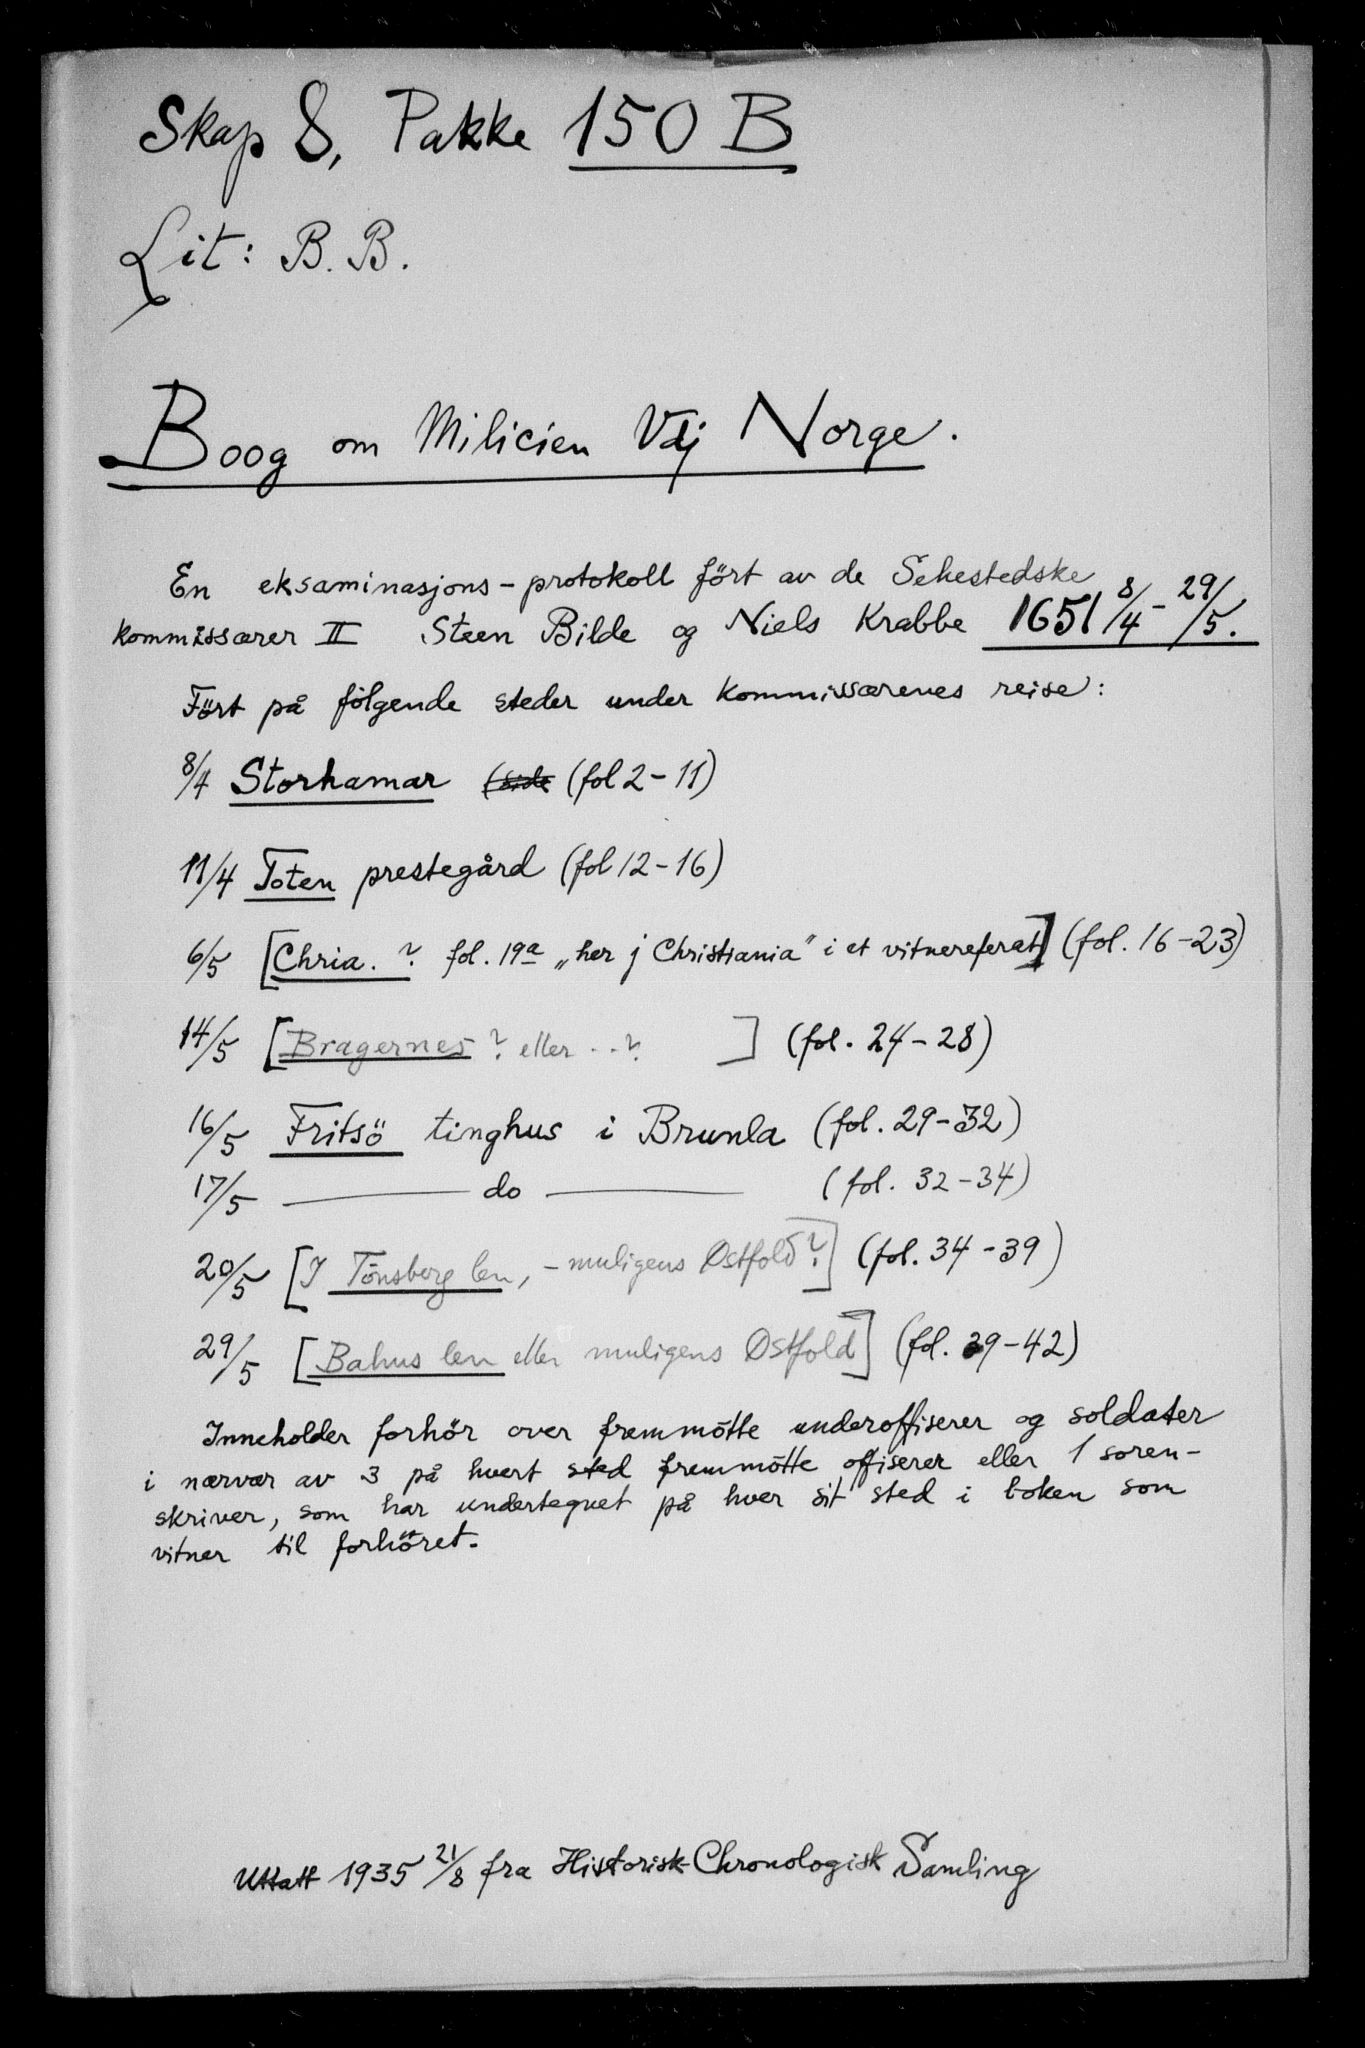 Skap 8, Pakke 150 B
Lit: B. B.
Boog om Milicien Vdj Norge.
En eksaminasjons-protokoll ført av de Sehestedske
kommissærer II Steen Bilde og Niels Krabbe 1651 8/4 - 29/5.
Ført på følgende steder under kommissærenes reise:
8/4 Storhamar (side (fol 2-11)
11/4 Toten prestegård (fol 12-16)
6/5 [Chria. ? fol. 19a „her j Christiania" i et vitnereferat] (fol. 16-23)
14/5 [Bragernes ? eller ..? ] (fol. 24-28)
16/5 Fritsö tinghus i Brunla (fol. 29-32)
17/5 — do — (fol. 32-34)
20/5 [I Tönsberg len, - muligens Østfold?] (fol. 34-39)
29/5 [Bahus len eller muligens Østfold] (fol. 39-42)
Inneholder forhör over fremmötte underoffiserer og soldater
i nærvær av 3 på hvert sted fremmötte offiserer eller 1 soren-
skriver, som har undertegnet på hver sit sted i boken som
vitner til forhöret.
Uttatt 1935 21/8 fra Historisk-Chronologisk Samling